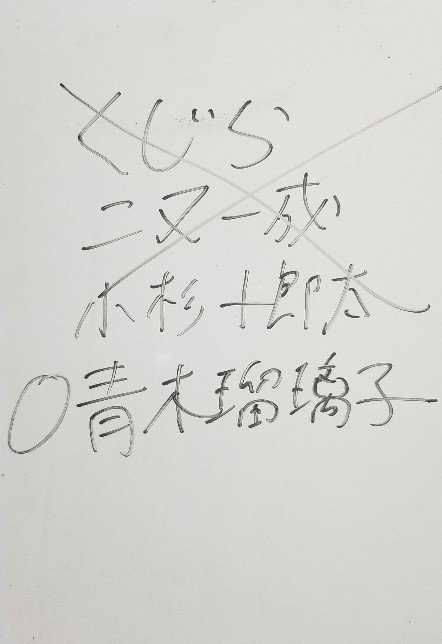 くじら
二又一成
小杉十郎太
〇青木瑠璃子